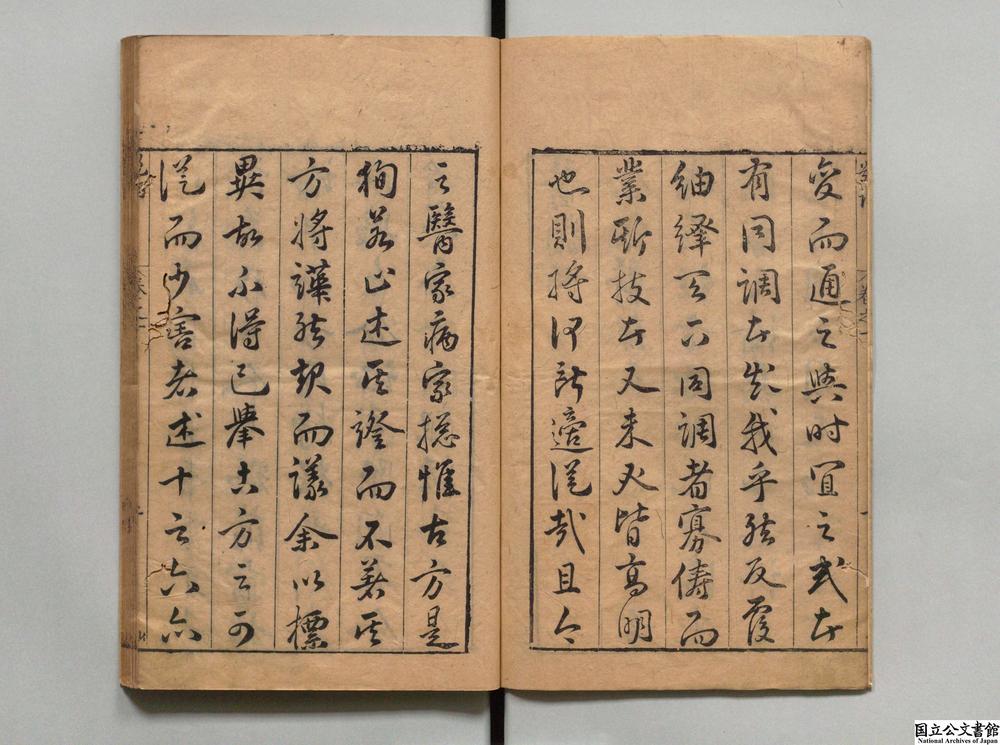 變而通之與时宜之或者
有同調者起我乎然反覆
紬繹天下同調者寡儔而
業斯技者又未必皆高明
也則將何所適從哉且今
之醫家病家摠惟古方是
狥若止述其證而不著其
方將譁然起而議余以標
異故不得已舉古方之可
從而少害者述十之六亦
国立公文書館
National Archives of Japan